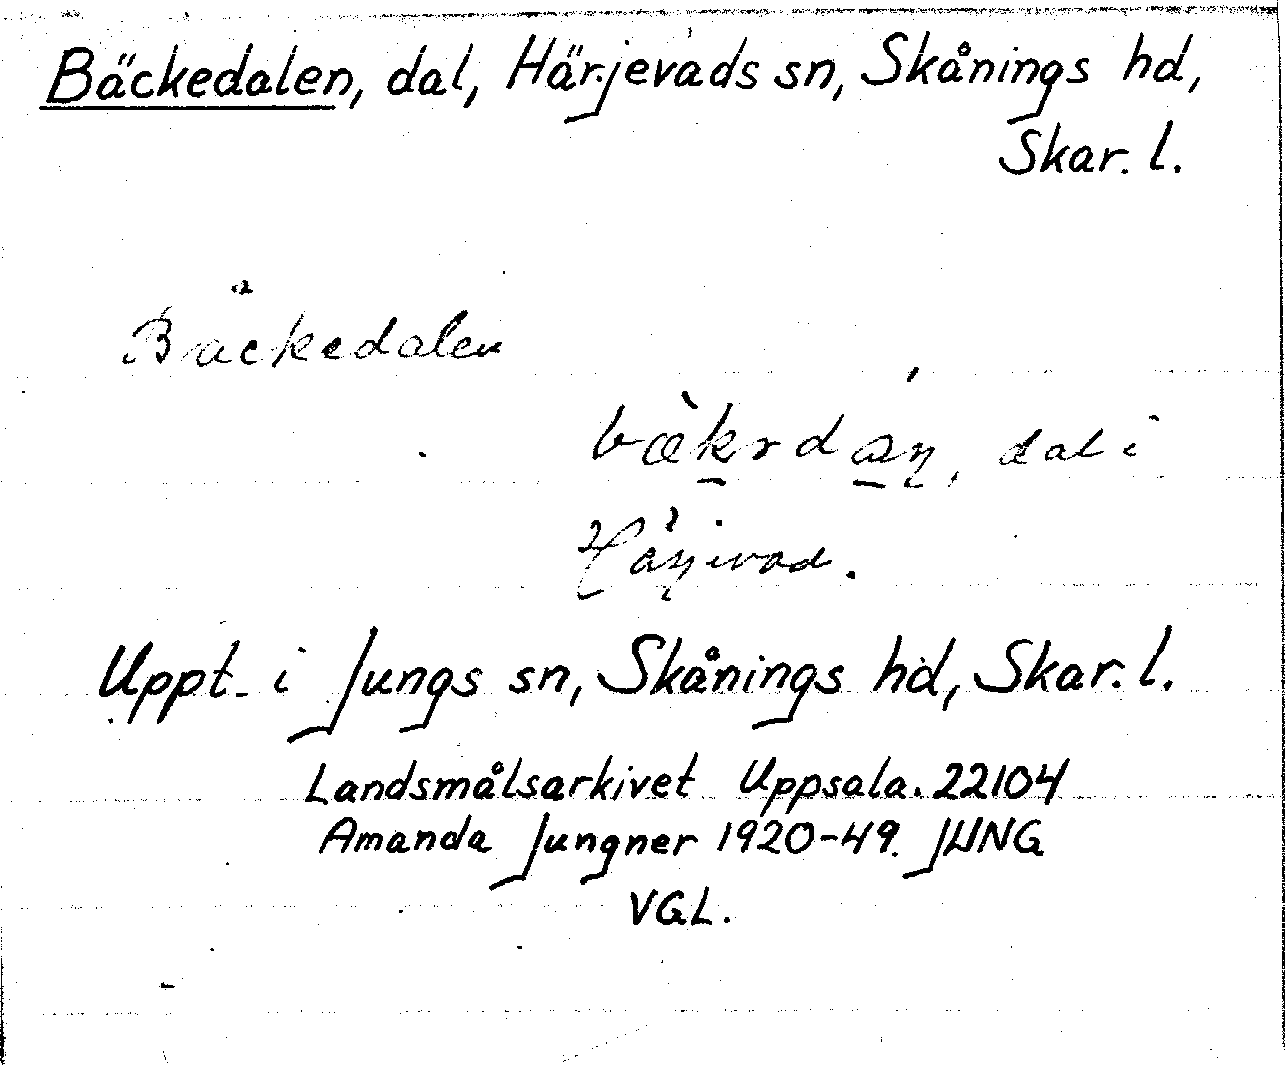 Bäckedalen, dal, Härjevads sn, Skånings hd,
Skar. l.
Bäckedalen
dal i
Härjevad.
Uppt. i Jungs sn, Skånings hd, Skar. l.
Landsmålsarkivet Uppsala. 22104
Amanda Jungner 1920-49. JUNG
VGL.